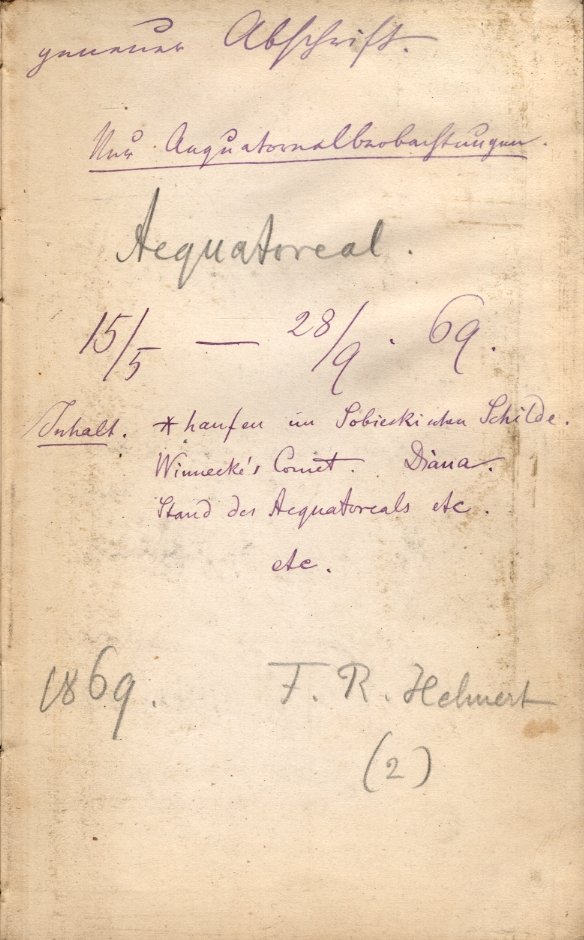 genauer Abschrift.
Nur Aequatorealbeobachtungen.
Aequatoreal.
15/5 — 28/9. 69.
Inhalt. *haufen im Sobieskischen Schilde.
Winnecke's Comet. Diana.
Stand des Aequatoreals etc.
etc.
1869. F. R. Helmert
(2)